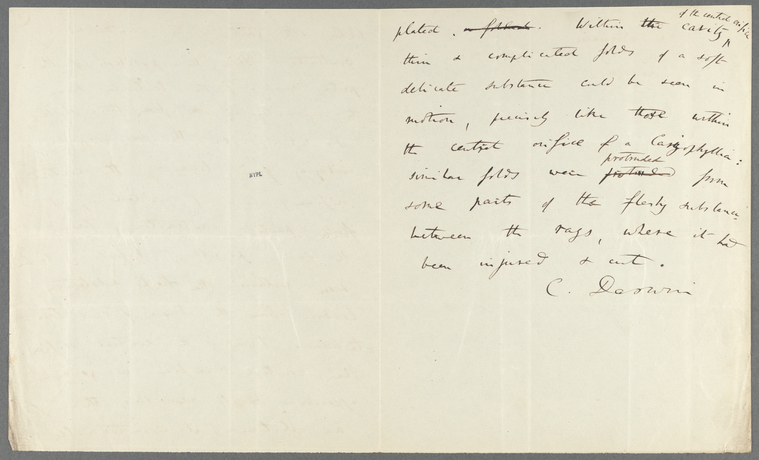 of the central orifice
plated. Within the cavity
thin & complicated folds of a soft
delicate substance could be seen in
motion, precisely like those within
the central orifice of a Caryophyllia:
protruded
similar folds were protruded from
some parts of the fleshy substance
between the rays, where it had
been injured & cut.
C. Darwin